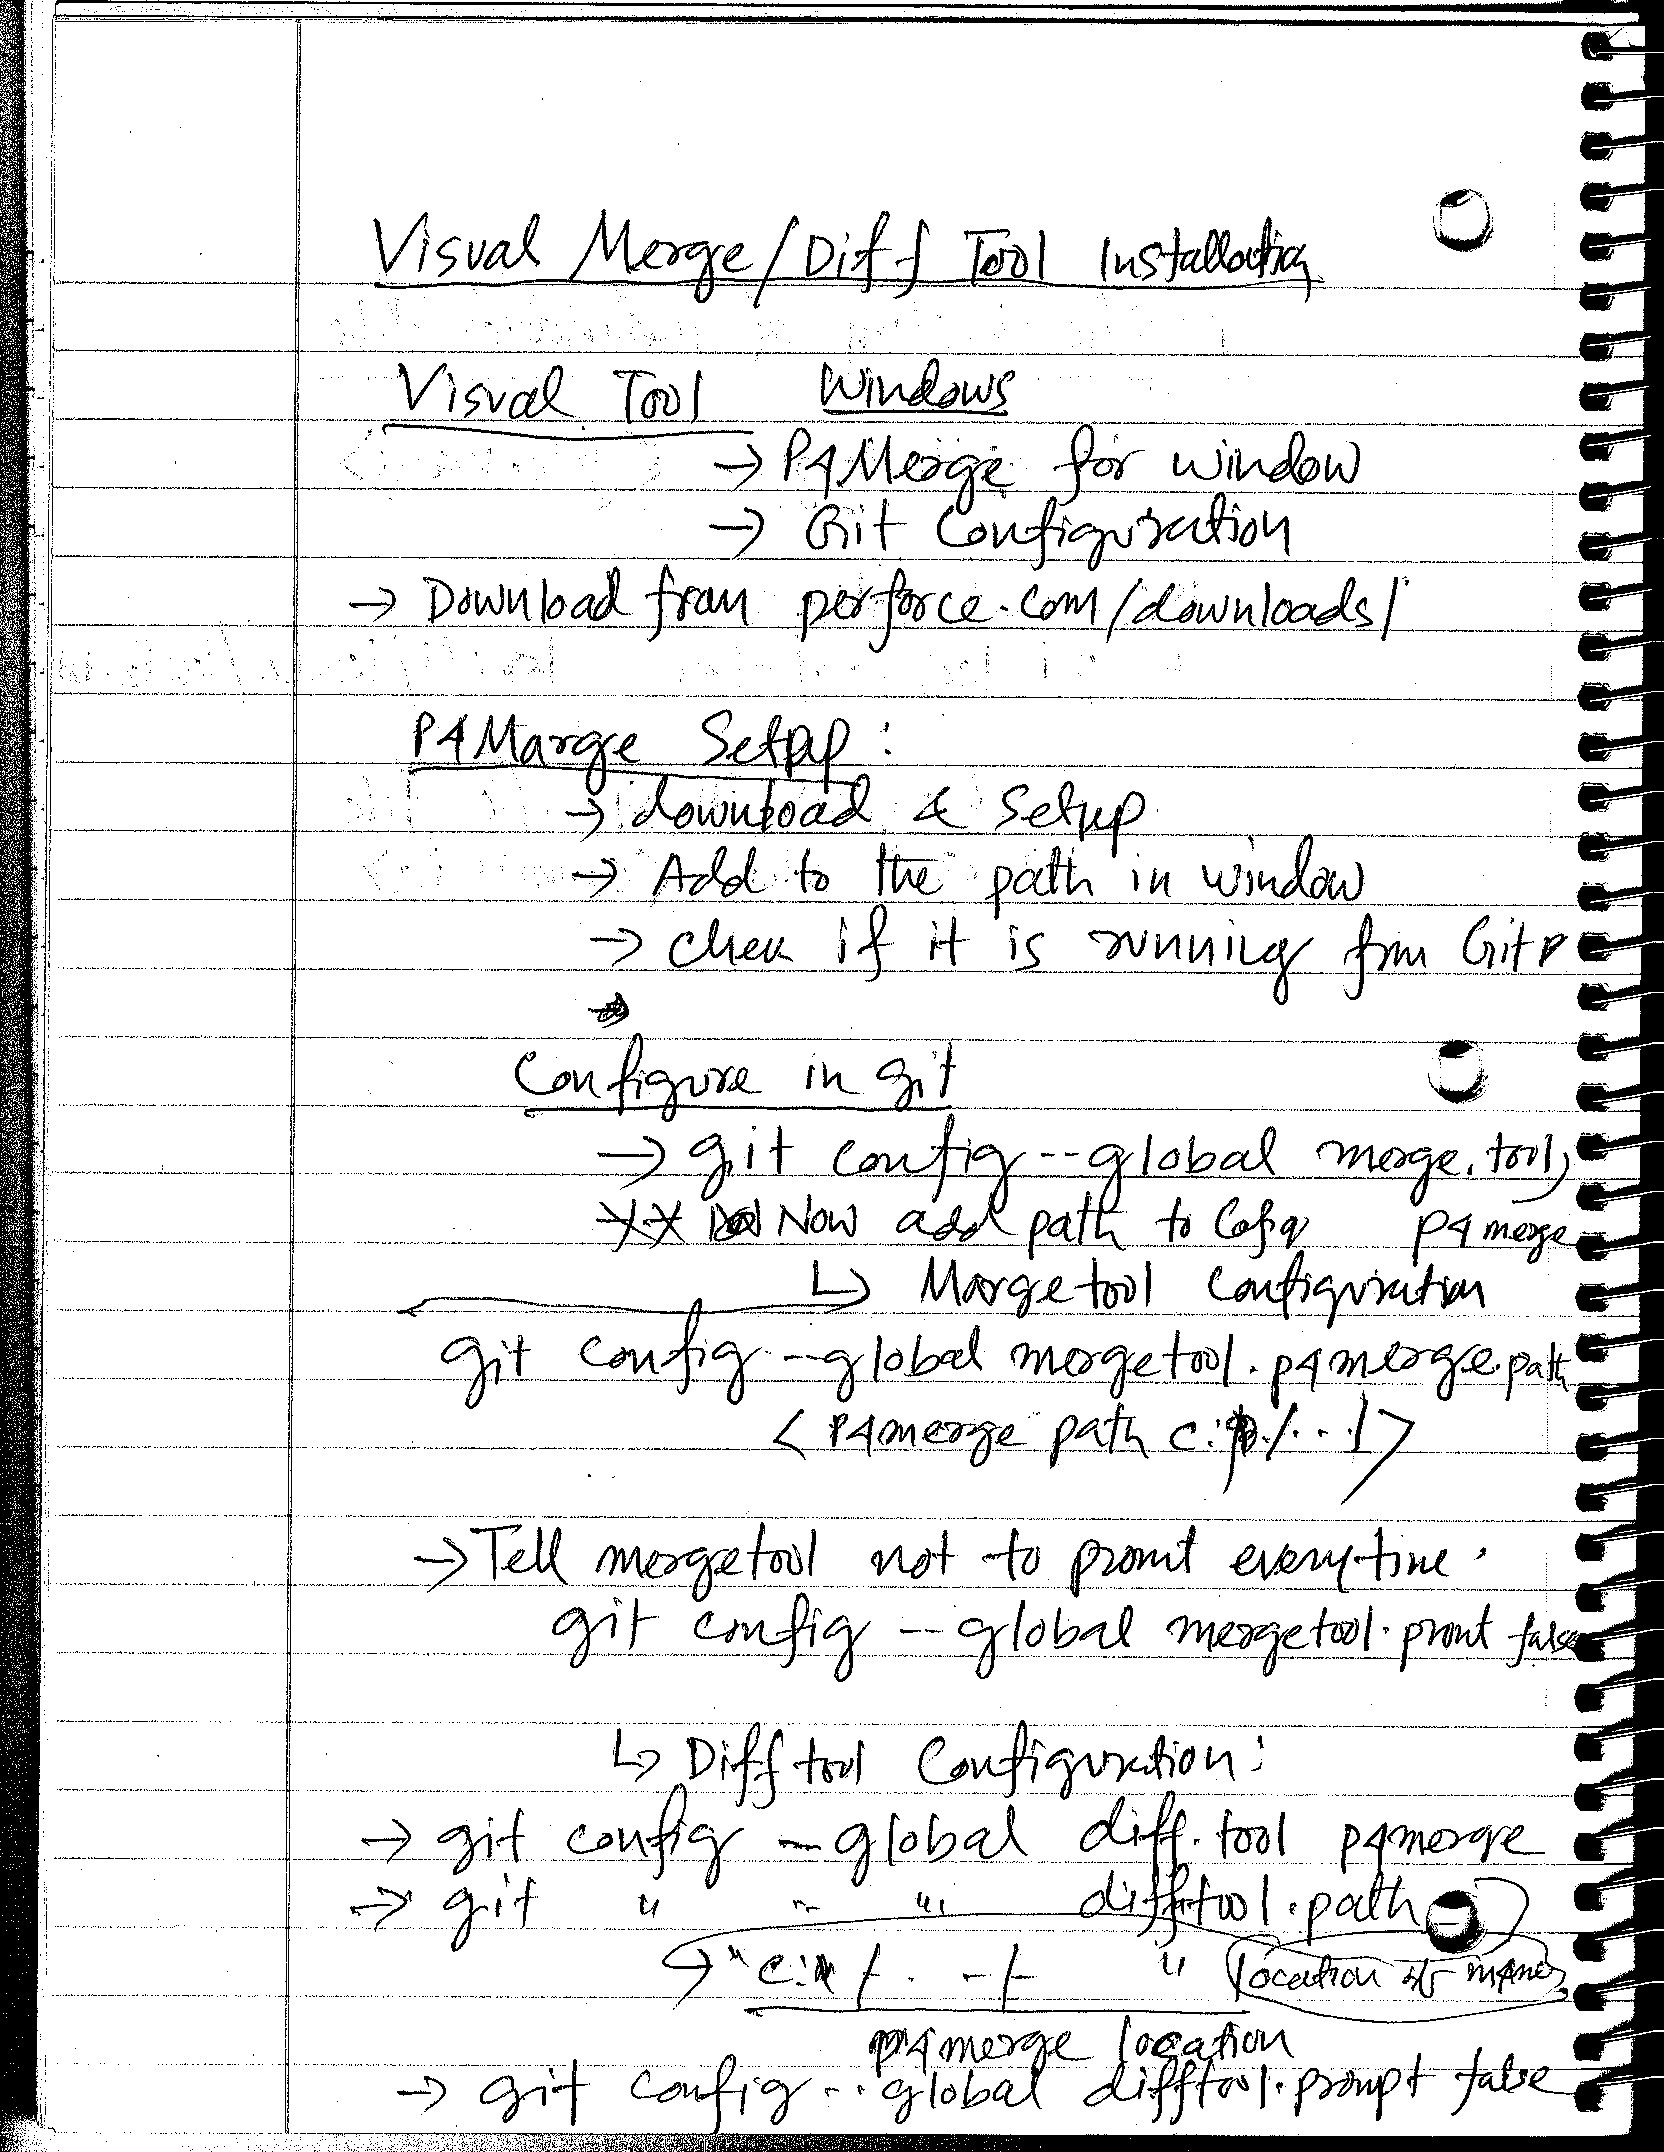 Visual Merge/Diff Tool Installation
Visual Tool Windows
→ P4Merge for window
→ Git Configuration
→ Download from perforce.com/downloads/
P4Marge Setup :
→ download & Setup
→ Add to the path in window
→ chek if it is running frm Git
Configure in git
→ git config --global merge.tool
** Now add path to p4merge
↳ Mergetool Configuration
git config --global mergetool.p4merge.path
< P4merge path c: /.../>
→ Tell mergetool not to promt everytime.
git config --global mergetool.promt false
↳ Difftool Configuration:
→ git config --global diff.tool p4merge
→ git " -- " difftool.path
↳ "c: /. . -/- " location of
p4merge location
→ git config --global difftool.prompt false